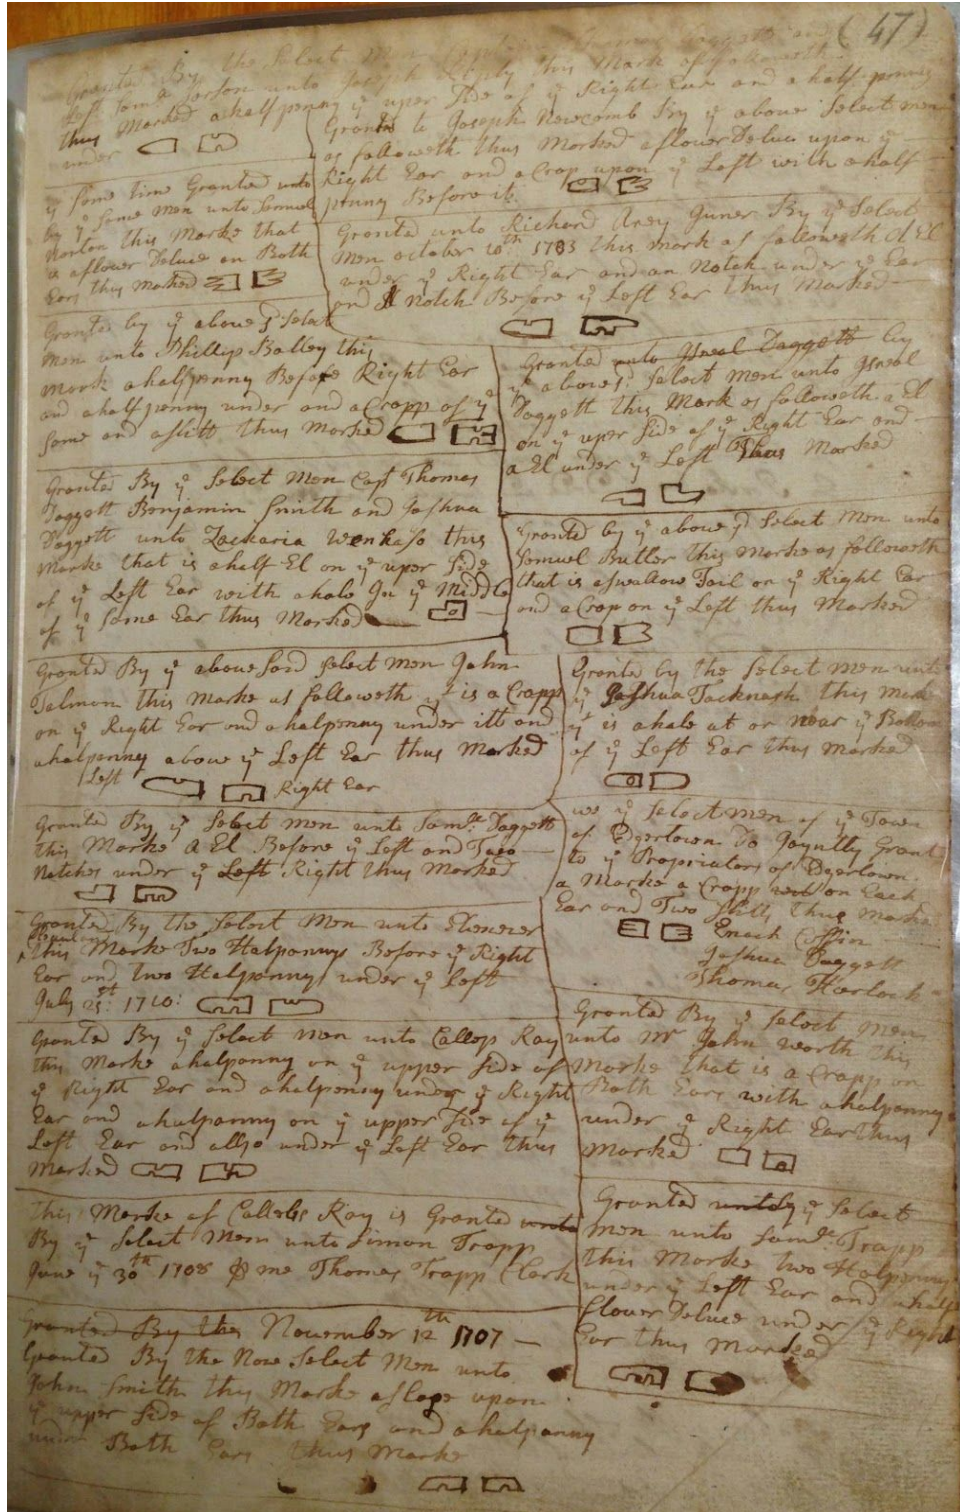 (47)
Granted By the Select Men
Left some Person unto Joseph Riply this Mark as followeth
thus Marked a halfpenny ye uper Side of ye Right Ear and a half penny
under
Granted to Joseph Newcomb By ye above Select men
as followeth thus Marked a flower Deluce upon ye
Right Ear and a Crop upon ye Left with a half
penny Before it
ye same time Granted unto
by ye same Men unto Samuel
Norton this Marke that
is a flower Deluce on Both
Ears thus marked
Granted unto Richard Arey Guner By ye Select
Men october 20th 1703 this mark as followeth A El
under ye Right Ear and an Notch under ye Ear
and A Notch Before ye Left Ear thus Marked
Granted by ye above sd Select
Men unto Phillip Balley this
Mark a halfpenny Before Right Ear
and a halfpenny under and a Cropp of ye
same and a slitt thus Marked
Granted unto Jsreal Daggett by
ye above sd Select Men unto Jsreal
Daggett this Mark as followeth a El
on ye uper Side of ye Right Ear and
a El under ye Left Thus Marked
Granted By ye Select Men Capt Thomas
Daggett Benjamin Smith and Joshua
Daggett unto Zackaria Wenkaso this
Marke that is a half El on ye uper Side
of ye Left Ear with a hole Jn ye Middle
of ye same Ear thus Marked
Granted by ye above sd Select Men unto
Samuel Butler this Marke as followeth
that is a swallow Tail on ye Right Ear
and a Crop on ye Left thus Marked
Granted By ye above Said Select Men John
Talmon this Marke as followeth yt is a Crapp
on ye Right Ear and a halpenny under itt and
a halpenny above ye Left Ear thus Marked
Left
Right Ear
Granted by the Select Men unto
ye Joshua Tacknash this Marke
yt is a hole at or near ye Bottom
of ye Left Ear thus Marked
Granted By ye Select Men unto Samll Daggett
this Marke A El Before ye Left and Two
Notches under ye Left Right thus Marked
we ye Select men of ye Town
of Edgertown Do Joyntly Grant
to ye Propriators of Edgertown
a Marke a Cropp on Each
Ear and Two slitts thus marked
Enoch Coffin
Joshua Daggett
Thomas Harlock
Granted By the Select Men unto Ebenezer
this Marke Two Halpennys Before ye Right
Ear and two Halpennys under ye Left
July 25st: 1710:
Granted By ye Select Men unto Callop Ray
this Marke a halpanny on ye upper Side of
ye Right Ear and a halpenny under ye Right
Ear and a halpanny on ye upper Side of ye
Left Ear and allso under ye Left Ear thus
Marked
Granted By ye Select Men
unto Mr John Worth this
Marke that is a Crapp on
Both Ears with a halpanny
under ye Right Ear thus
Marked
This Marke of Callebs Ray is Granted unto
By ye Select Men unto Simon Trapp
June ye 30th 1708 me Thomas Trapp Clark
Granted unto by ye Select
Men unto Samll Trapp
this Marke two Halpennys
under ye Left Ear and a half
flower Deluce under ye Right
Ear thus Marked
Granted By the November 12th 1707
Granted By the Now Select Men unto
John Smith this Marke a slope upon
ye upper Side of Both Ears and a halpanny
under Both Ears thus Marke